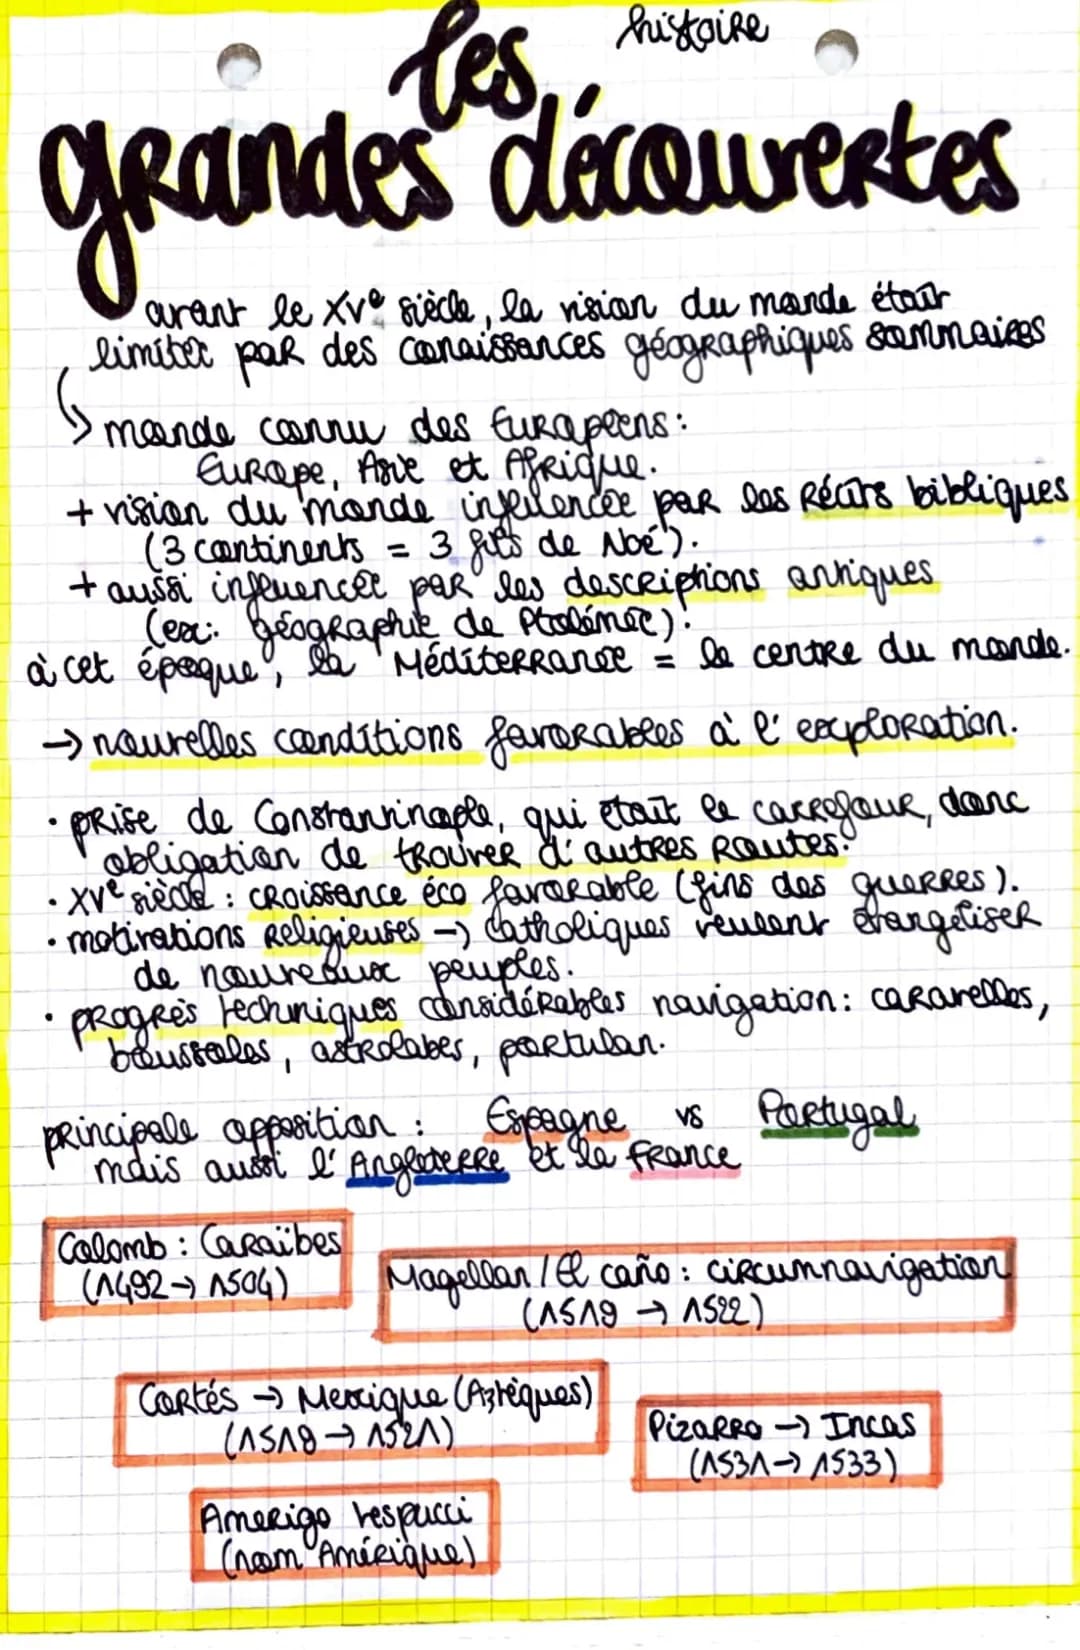 histoire
les
grandes découvertes
avant le XVe siècle, la vision du monde était
limitée par des conaissances géographiques sommaires
↳ monde connu des Européens :
Europe, Asie et Afrique.
+ vision du monde influencée par les Récits bibliques
(3 continents = 3 fils de Noé).
+ aussi influencée par les descriptions antiques
(ex: géographie de Ptolémée).
à cet époque, la Méditerranée = le centre du monde.
→ nouvelles conditions favorables à l'exploration.
· prise de Constantinople, qui était le carrefour, donc
obligation de trouver d'autres routes.
· XVe siècle : croissance éco favorable (fins des guerres).
· motivations religieuses → Catholiques veulent évangéliser
de nouveaux peuples.
· progrès techniques considérables navigation : caravelles,
boussoles, astrolabes, portulan.
principale opposition : Espagne vs Portugal
mais aussi l'Angleterre et la France
Colomb : Caraïbes
(1492 → 1504)
Magellan / El caño : circumnavigation
(1519 → 1522)
Cortés → Mexique (Aztèques)
(1519 → 1521)
Pizarro → Incas
(1531 → 1533)
Amerigo Vespucci
(nom Amérique)